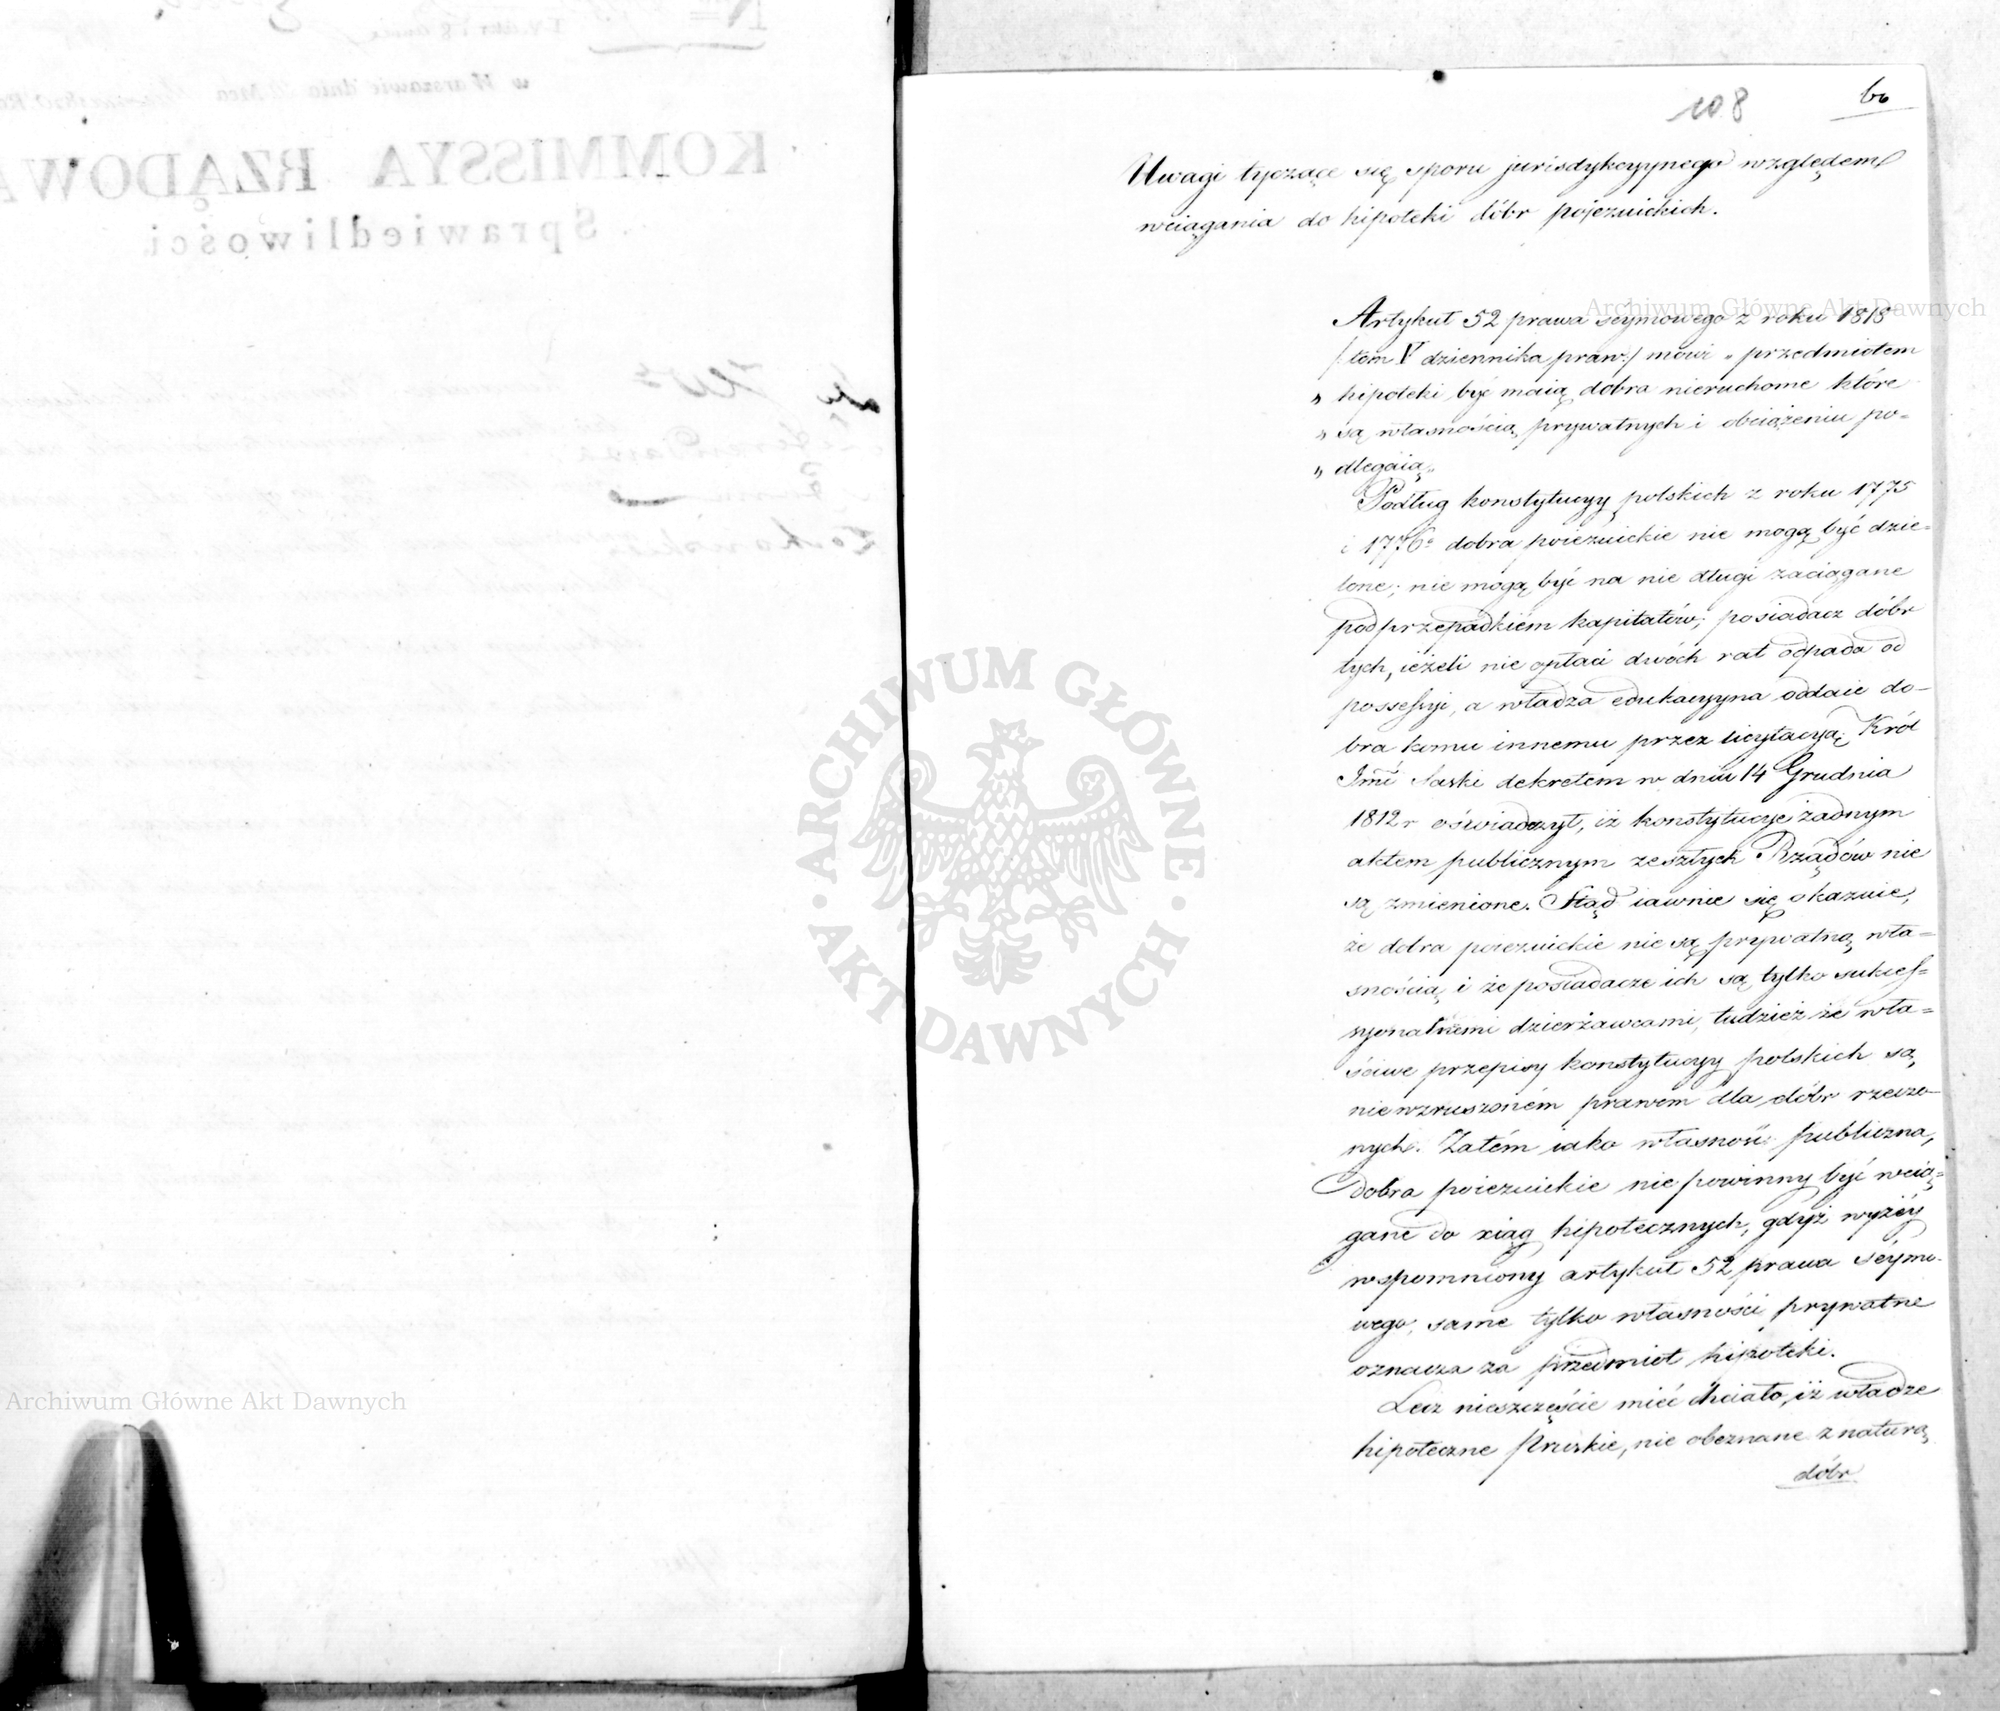 KOMMISSYA RZĄDOWA
Sprawiedliwości
108
Uwagi tyczące się sporu jurisdykcyynego względem
wciągania do hipoteki dóbr pojezuickich.
Artykuł 52 prawa seymowego z roku 1818
/: tom V dziennika praw :/ mówi „ przedmiotem
„ hipoteki być maią dobra nieruchome które
„ są własnością prywatnych i obciążeniu po=
„ dlegaią„
Podług konstytucyy polskich z roku 1775
i 1776º dobra poiezuickie nie mogą być dzie=
lone; nie mogą być na nie długi zaciągane
pod przepadkiem kapitałów; posiadacz dóbr
tych, ieżeli nie opłaci dwóch rat odpada od
possessyi, a władza edukacyyna oddaie do=
bra komu innemu przez licytacyą; Król
Jmć Saski dekretem w dniu 14 Grudnia
1812 r oświadczył, iż konstytucye żadnym
aktem publicznym zeszłych Rządów nie
są zmienione. Stąd iawnie się okazuie,
że dobra poiezuickie nie są prywatną wła=
snością i że posiadacze ich są tylko sukces=
syonalnemi dzierżawcami, tudzież że wła=
ściwe przepisy konstytucyy polskich są
niewzruszoném prawem dla dóbr rzeczo=
nych. Zatém iako własność publiczna,
dobra poiezuickie nie powinny być wcią=
gane do xiąg hipotecznych, gdyż wyżéy
wspomniony artykuł 52 prawa Seymo=
wego, same tylko własności prywatne
oznacza za przedmiot hipoteki.
Lecz nieszczęście mieć chciało, iż władze
hipoteczne Pruskie, nie obeznane z naturą
dóbr
Archiwum Główne Akt Dawnych
ARCHIWUM GŁÓWNE AKT DAWNYCH
Archiwum Główne Akt Dawnych